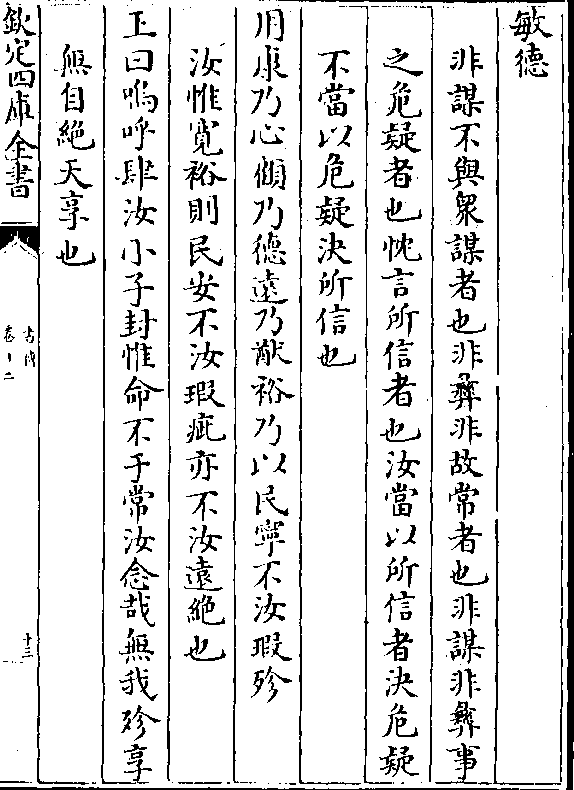 敏德
非謀不與衆謀者也非彝非故常者也非謀非彝事
之危疑者也忱言所信者也汝當以所信者決危疑
不當以危疑決所信也
用康乃心顧乃德遠乃猷裕乃以民寧不汝瑕殄
汝惟寛裕則民安不汝瑕疵亦不汝遠絶也
王曰嗚呼肆汝小子封惟命不于常汝念哉無我殄享
無自絶天享也
欽定四庫全書
書傳
卷十二
十三